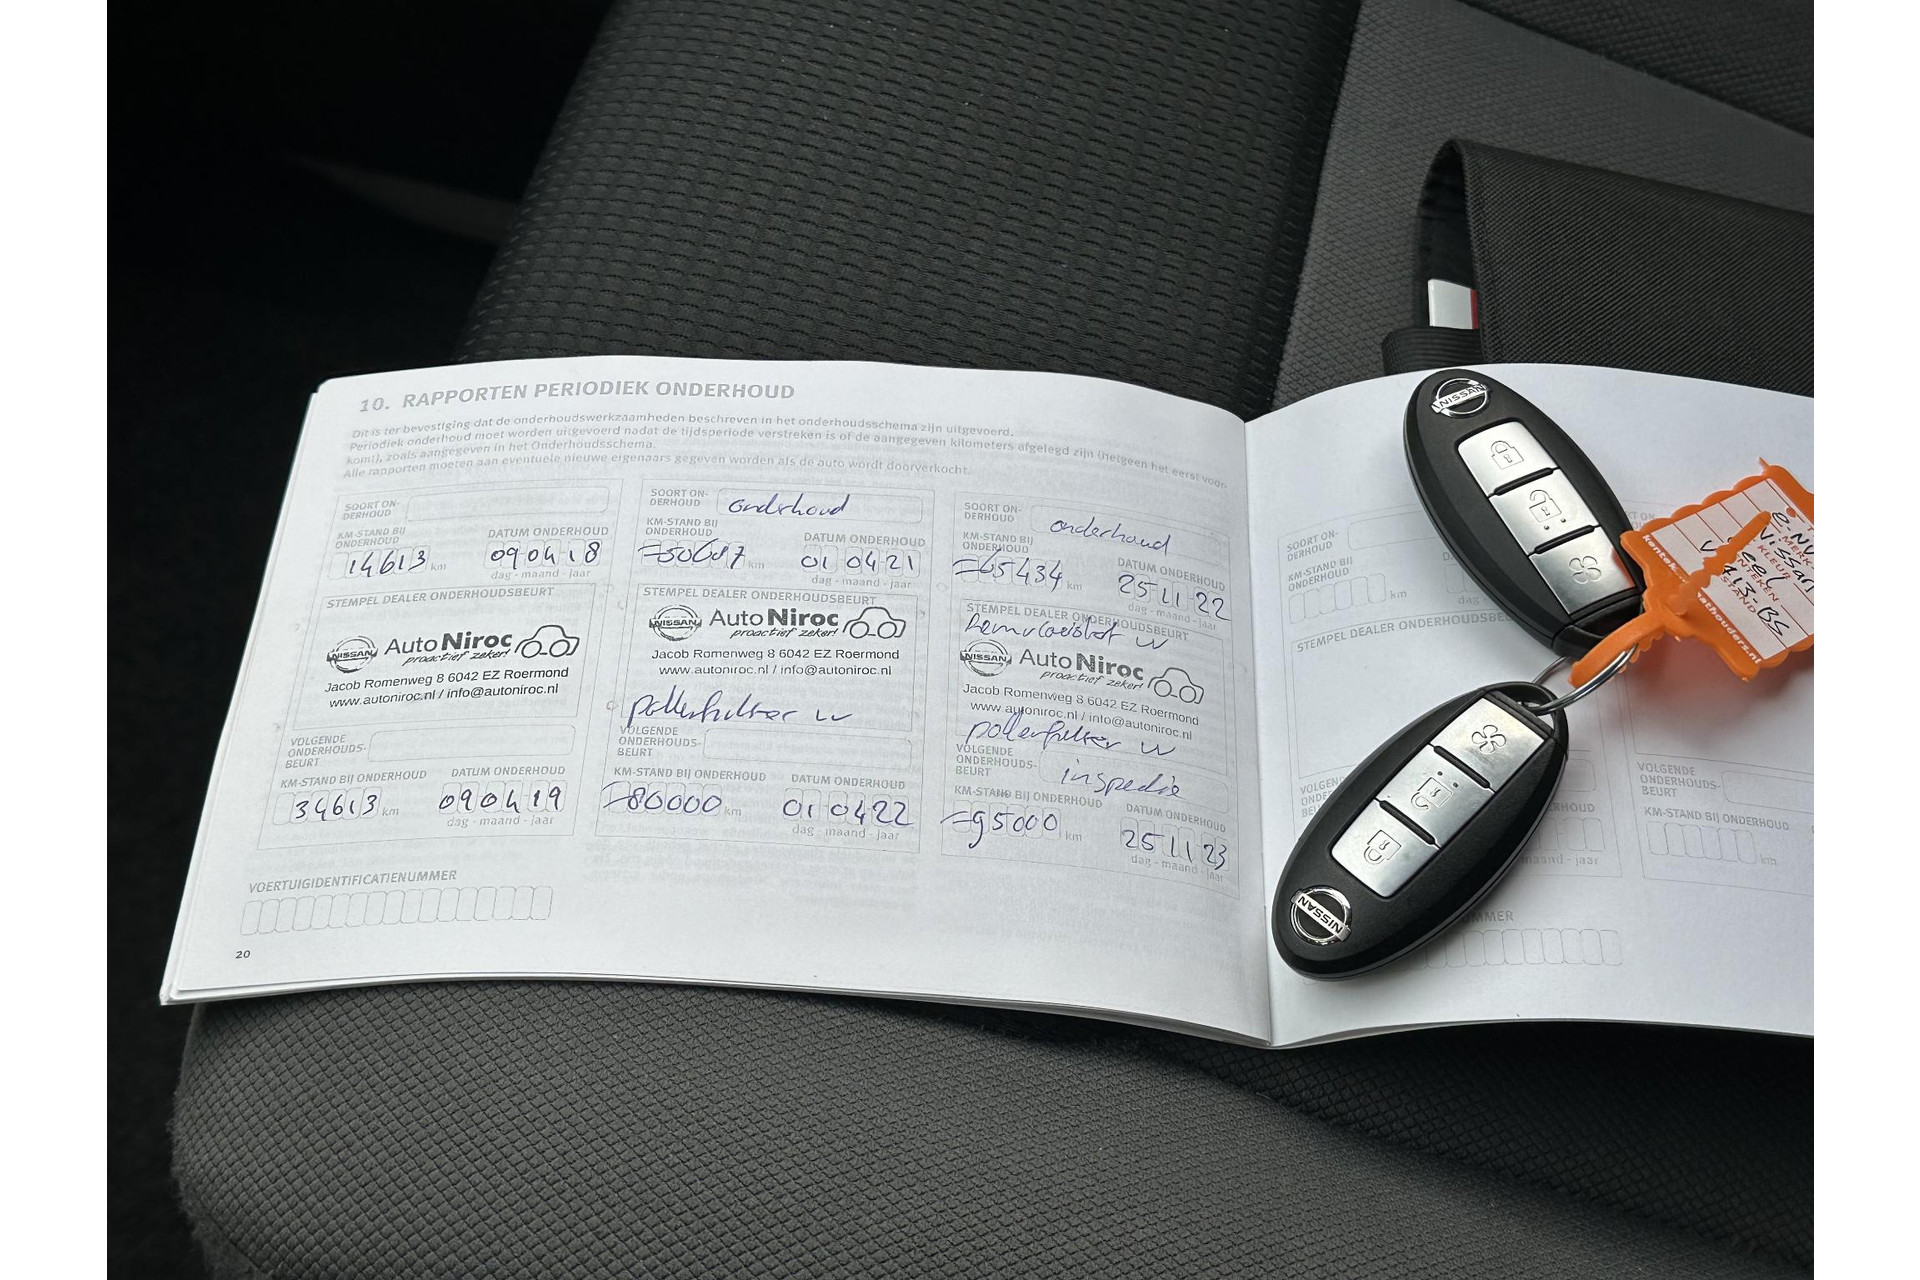 10. RAPPORTEN PERIODIEK ONDERHOUD
Dit is ter bevestiging dat de onderhoudswerkzaamheden beschreven in het onderhoudsschema zijn uitgevoerd.
Periodiek onderhoud moet worden uitgevoerd nadat de tijdsperiode verstreken is of de aangegeven kilometers afgelegd zijn (hetgeen het eerst voor-
komt), zoals aangegeven in het Onderhoudsschema.
Alle rapporten moeten aan eventuele nieuwe eigenaars gegeven worden als de auto wordt doorverkocht.
SOORT ON-
DERHOUD
KM-STAND BIJ
ONDERHOUD
14613 km
DATUM ONDERHOUD
09 04 18
dag - maand - jaar
STEMPEL DEALER ONDERHOUDSBEURT
NISSAN Auto Niroc
proactief zeker!
Jacob Romenweg 8 6042 EZ Roermond
www.autoniroc.nl / info@autoniroc.nl
VOLGENDE
ONDERHOUDS-
BEURT
KM-STAND BIJ ONDERHOUD
34613 km
DATUM ONDERHOUD
09 04 19
dag - maand - jaar
VOERTUIGIDENTIFICATIENUMMER
20
SOORT ON-
DERHOUD
onderhoud
KM-STAND BIJ
ONDERHOUD
km
DATUM ONDERHOUD
01 04 21
dag - maand - jaar
STEMPEL DEALER ONDERHOUDSBEURT
NISSAN Auto Niroc
proactief zeker!
Jacob Romenweg 8 6042 EZ Roermond
www.autoniroc.nl / info@autoniroc.nl
pollenfilter
VOLGENDE
ONDERHOUDS-
BEURT
KM-STAND BIJ ONDERHOUD
80000 km
DATUM ONDERHOUD
01 04 22
dag - maand - jaar
SOORT ON-
DERHOUD
onderhoud
KM-STAND BIJ
ONDERHOUD
65434 km
DATUM ONDERHOUD
25 11 22
dag - maand - jaar
STEMPEL DEALER ONDERHOUDSBEURT
NISSAN Auto Niroc
proactief zeker!
Jacob Romenweg 8 6042 EZ Roermond
www.autoniroc.nl / info@autoniroc.nl
pollenfilter
VOLGENDE
ONDERHOUDS-
BEURT
inspectie
KM-STAND BIJ ONDERHOUD
95000 km
DATUM ONDERHOUD
25 11 23
dag - maand - jaar
SOORT ON-
DERHOUD
KM-STAND BIJ
ONDERHOUD
km
STEMPEL DEALER ONDERHOUDSBEU
VOLGENDE
ONDERHOUDS-
BEURT
KM-STAND BIJ ONDERHOUD
km
NISSAN
NISSAN
Nissan